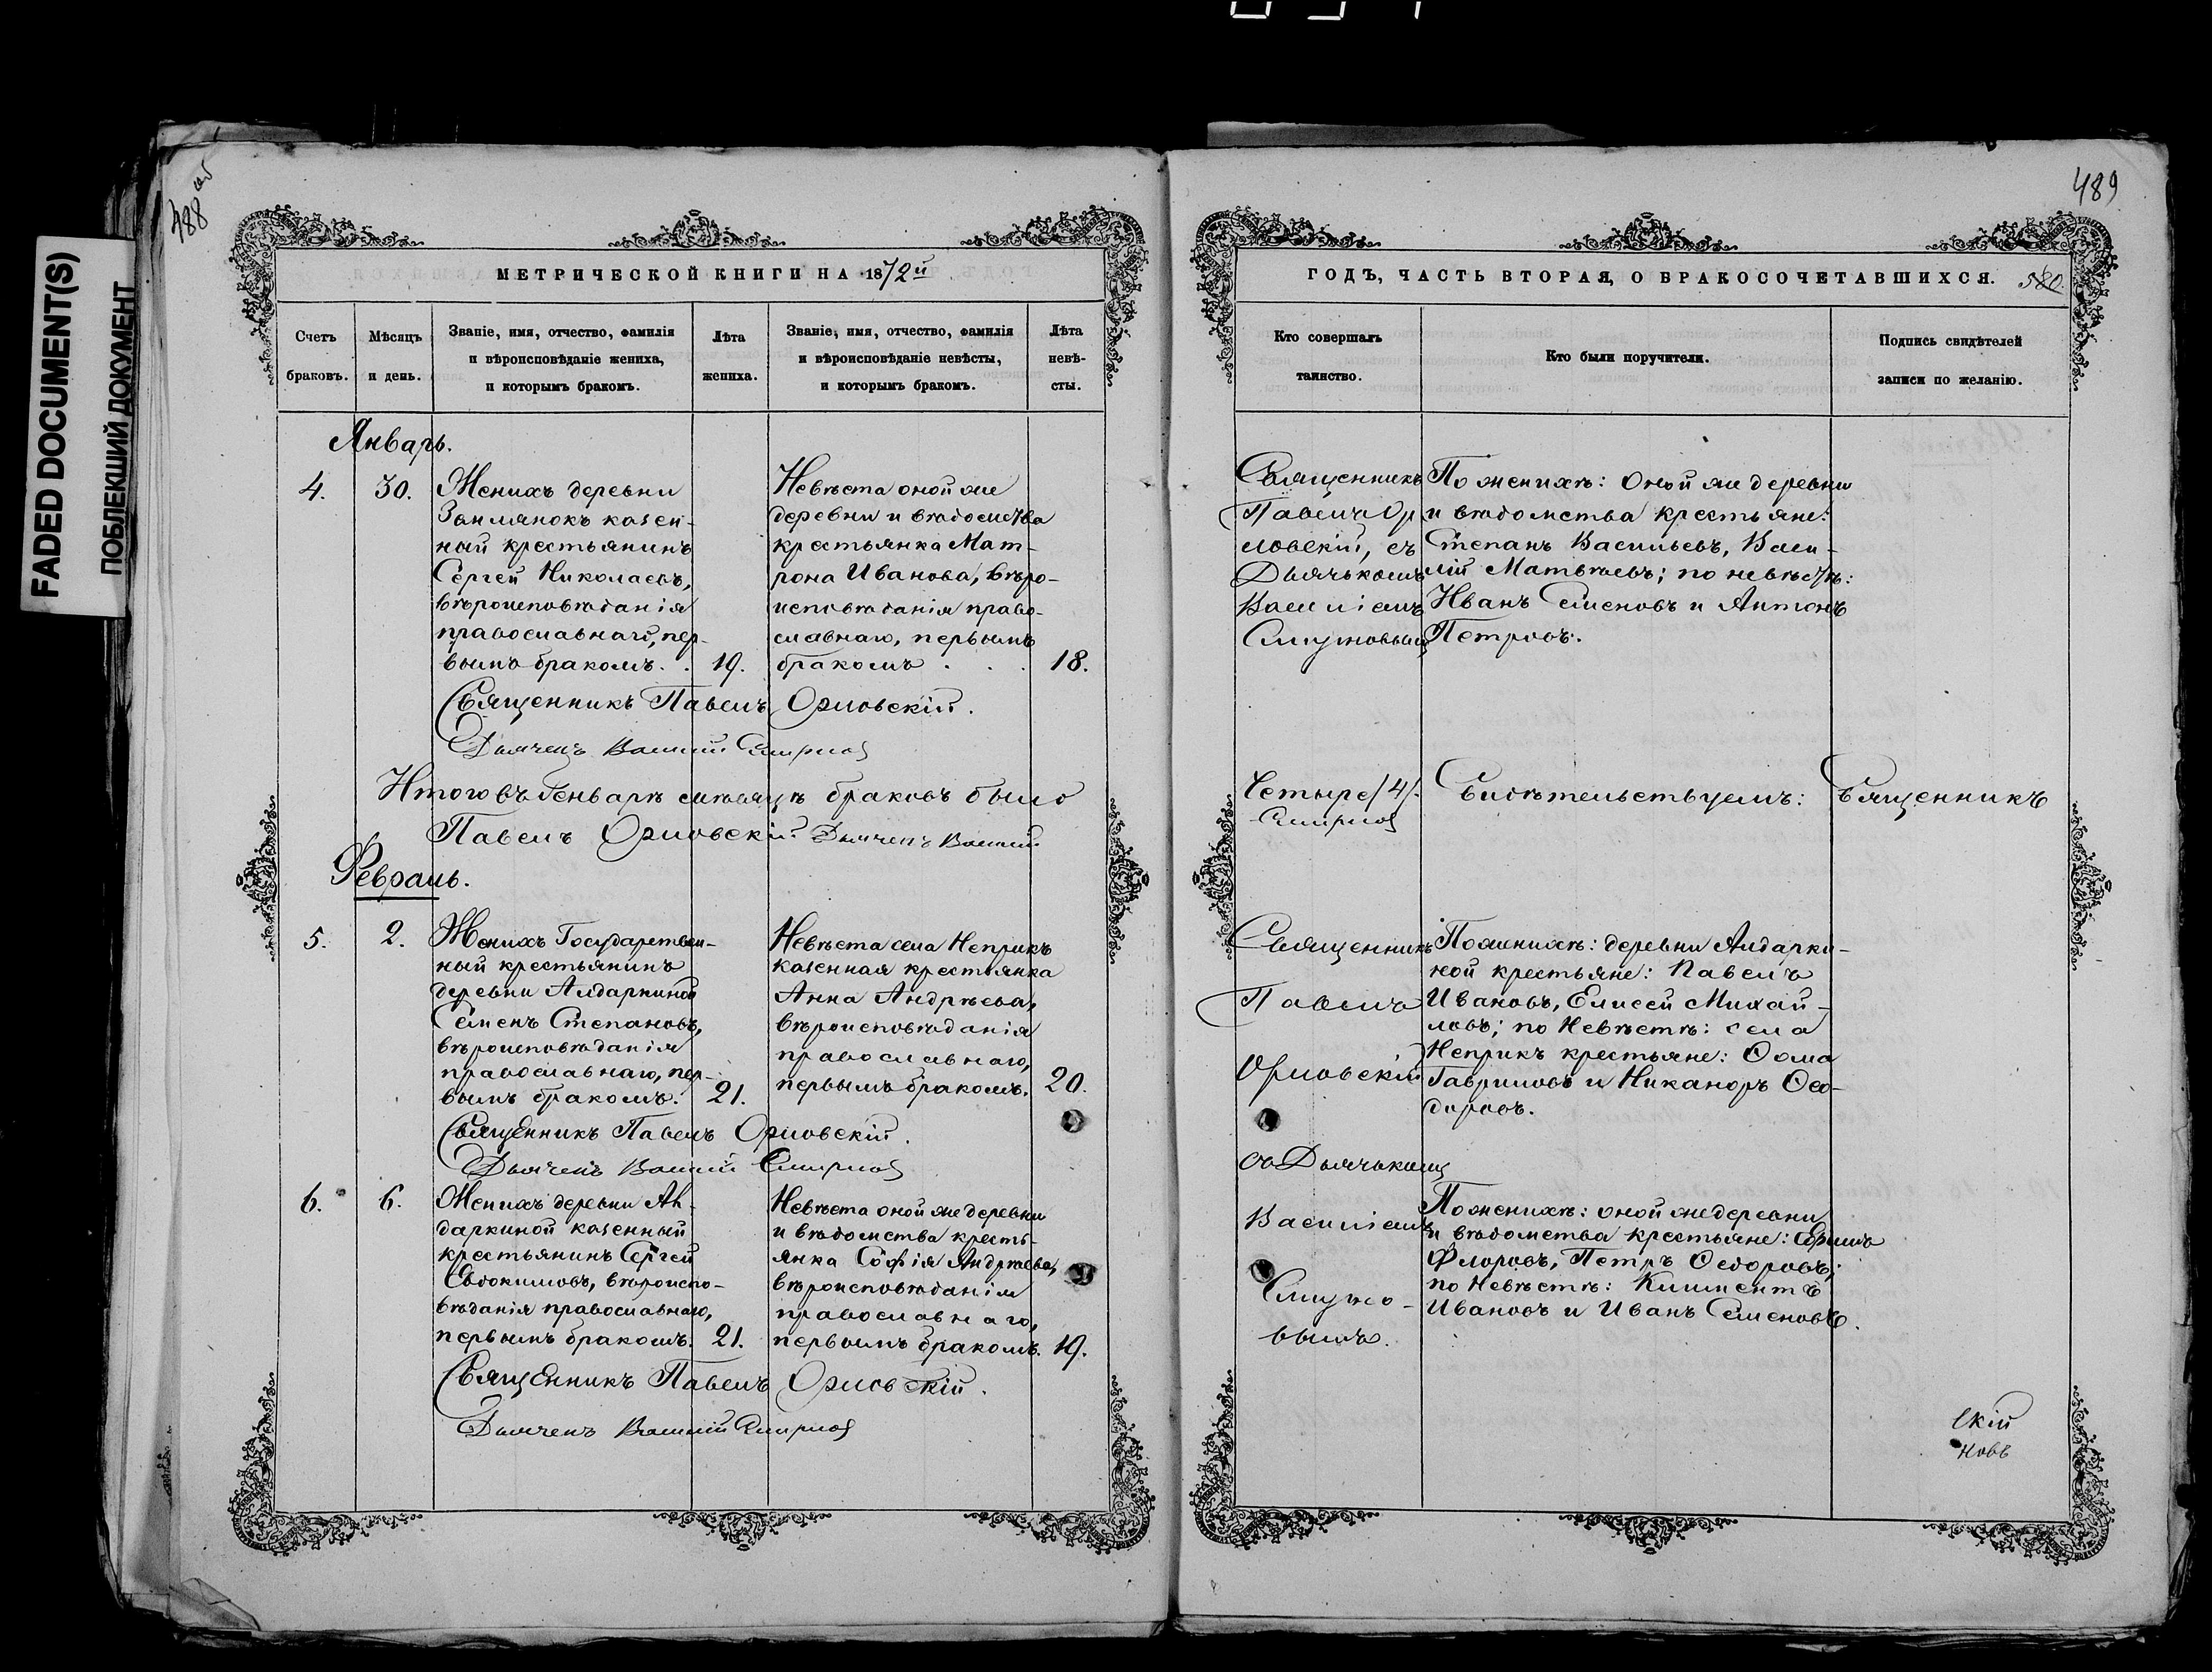 FADED DOCUMENT(S)
ПОБЛЕКШИЙ ДОКУМЕНТ
488 об
МЕТРИЧЕСКОЙ КНИГИ НА 1872й
Счетъ браковъ.
Мѣсяцъ и день.
Званіе, имя, отчество, фамилія
и вѣроисповѣданіе жениха,
и которымъ бракомъ.
Лѣта жениха.
Званіе, имя, отчество, фамилія
и вѣроисповѣданіе невѣсты,
и которымъ бракомъ.
Лѣта невѣ-
сты.
Январь.
4. 30.
Женихъ деревни
Землянокъ казен-
ный крестьянинъ
Сергей Николаевъ,
вѣроисповѣданія
православнаго, пер-
вымъ бракомъ. . 19.
Невѣста оной же
деревни и вѣдомства
крестьянка Мат-
рона Иванова, вѣро-
исповѣданія право-
славнаго, первымъ
бракомъ . . . 18.
Священникъ Павелъ Орловскій.
Дьячекъ Василій Смирнов
Итого въ Генварѣ мѣсяцѣ браковъ было
Павелъ Орловскій Дьячекъ Василій
Февраль.
5. 2.
Женихъ Государствен-
ный крестьянинъ
деревни Алдаркиной
Семенъ Степановъ,
вѣроисповѣданія
православнаго, пер-
вымъ бракомъ. 21.
Невѣста села Неприкъ
казенная крестьянка
Анна Андрѣева,
вѣроисповѣданія
православнаго,
первымъ бракомъ. 20.
Священникъ Павелъ Орловскій.
Дьячекъ Василій Смирнов
6. 6.
Женихъ деревни Ал-
даркиной казенный
крестьянинъ Сергей
Евдокимовъ, вѣроиспо-
вѣданія православнаго,
первымъ бракомъ. 21.
Невѣста оной же деревни
и вѣдомства кресть-
янка Софія Андрѣева,
вѣроисповѣданія
православнаго,
первымъ бракомъ. 19.
Священникъ Павелъ Орловскій.
Дьячекъ Василій Смирнов
489
ГОДЪ, ЧАСТЬ ВТОРАЯ, О БРАКОСОЧЕТАВШИХСЯ. 580.
Кто совершалъ
таинство.
Кто были поручители.
Подпись свидѣтелей
записи по желанію.
Священникъ
Павелъ Ор
ловскій, съ
Дьячькомъ
Василіемъ
По женихѣ: оной же деревни
и вѣдомства крестьяне:
Степанъ Васильевъ, Васи-
лій Матвѣевъ; по невѣстѣ:
Иванъ Семеновъ и Антонъ
Петровъ.
Четыре /4/. Свидѣтельствуемъ: Священникъ
Смирнов
Священникъ
Павелъ
Орловскій
съ Дьячькомъ
Василіемъ
По женихѣ: деревни Алдарки-
ной крестьяне: Павелъ
Ивановъ, Елисей Михай-
ловъ; по Невѣстѣ: села
Неприкъ крестьяне: Ѳома
Гавриловъ и Никаноръ Ѳео-
доровъ.
По женихѣ: оной же деревни
и вѣдомства крестьяне:
Флоровъ, Петръ Ѳедоровъ;
по Невѣстѣ: Климентъ
Ивановъ и Иванъ Семеновъ.
скій
новъ